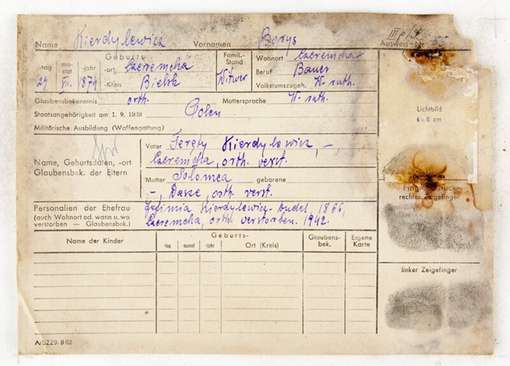 Name Kierdylewicz Vornamen Borys Ausweis-Nr.
Geburts- Famil.- Stand Wohnort Czeremcha
tag monat jahr -ort Czeremcha Beruf Bauer
29 1879 -Kreis Bielsk Witwer Volkstumszugeh. W-ruth.
Glaubensbekenntnis orth. Muttersprache W-ruth.
Staatsangehörigkeit am 1. 9. 1939 Polen
Militärische Ausbildung (Waffengattung)
Lichtbild
Name, Geburtsdaten, -ort
Glaubensbek. der Eltern
Vater Kierdylewicz, -,
Czeremcha, orth. verst.
Mutter Solomea geborene
-, orth. verst.
rechter Zeigefinger
Personalien der Ehefrau
(auch Wohnort od. wann u. wo
verstorben — Glaubensbek.)
Kierdylewicz 1876,
Czeremcha, orth. verstorben 1942
Name der Kinder Geburts- Glaubens- bek. Eigene Karte
tag monat jahr Ort (Kreis)
linker Zeigefinger